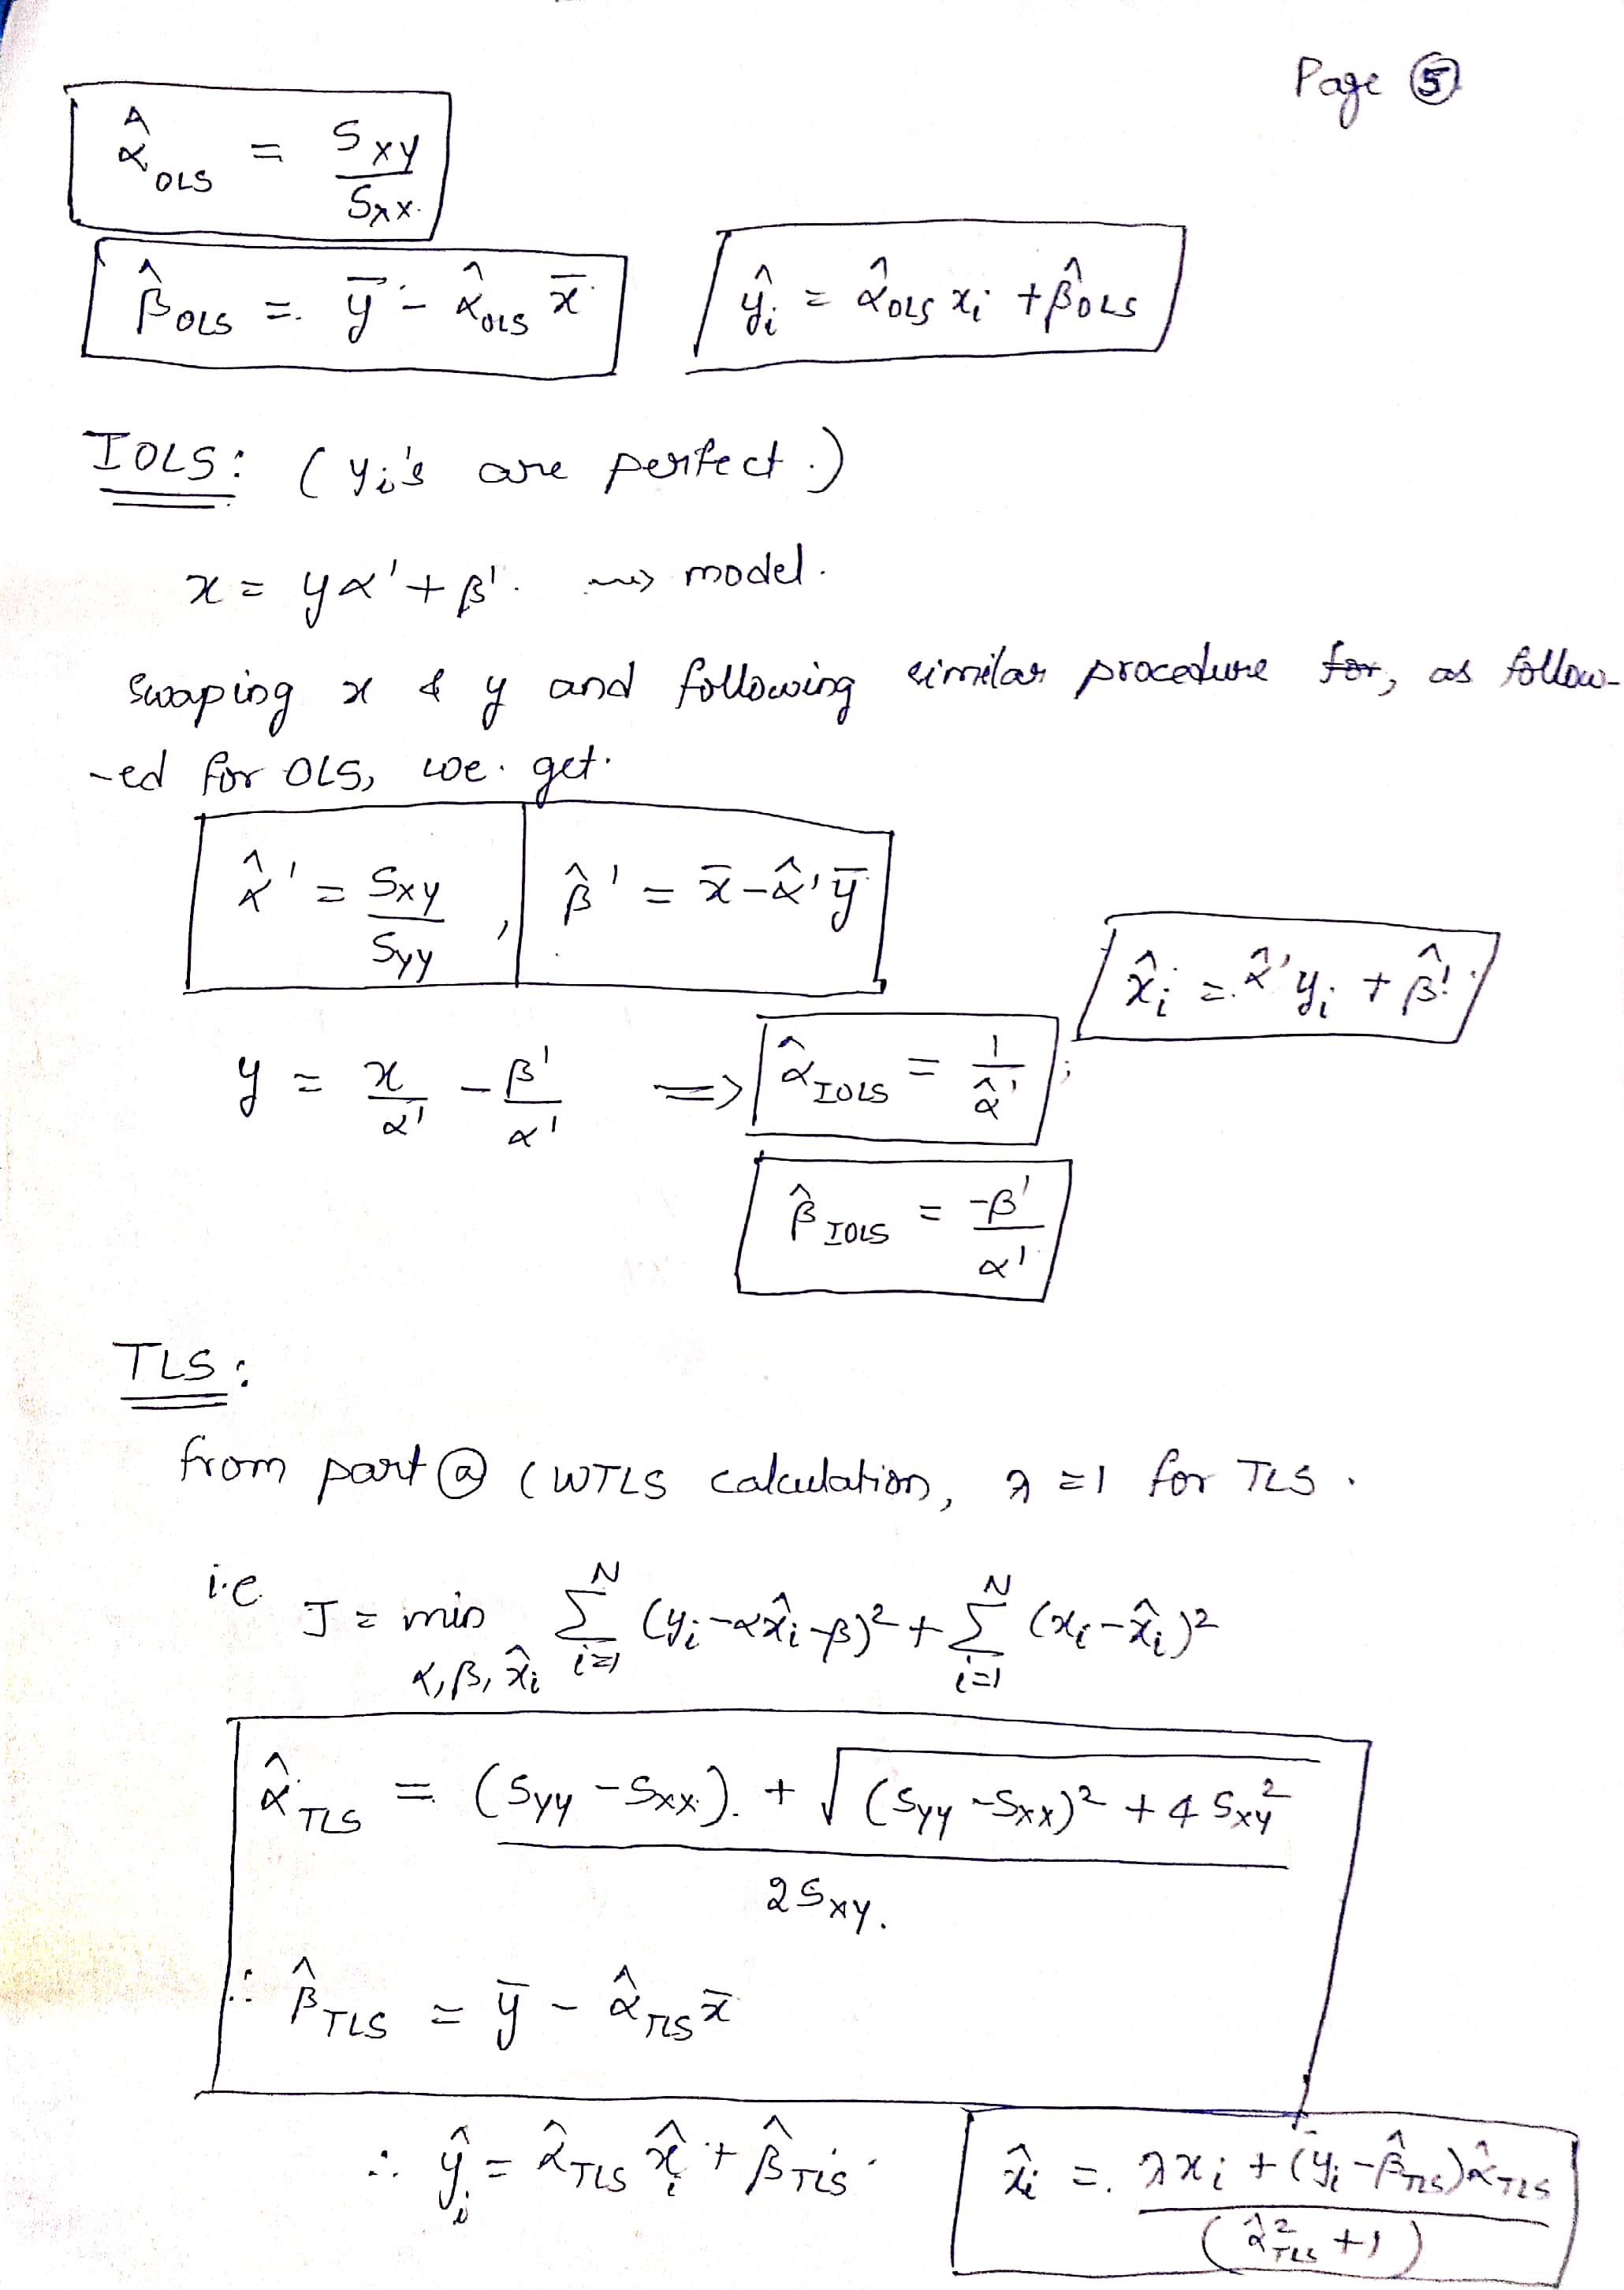 Page ⑤
α̂_OLS = S_xy / S_xx.
β̂_OLS = ȳ - α̂_OLS x̄
ŷ_i = α̂_OLS x_i + β̂_OLS
IOLS: (y_i's are perfect.)
x = yα' + β'. ⇝ model.
swaping x & y and following similar procedure ~~for~~, as follow-
-ed for OLS, we get.
α̂' = S_xy / S_yy , β̂' = x̄ - α̂'ȳ
x̂_i = α̂'y_i + β̂'.
y = x/α' - β'/α' => α̂_IOLS = 1/α̂' ;
β̂_IOLS = -β'/α'
TLS:
from part ⓐ (WTLS calculation, λ=1 for TLS.
i.e J = min_{α,β,x̂_i} Σ_{i=1}^{N} (y_i - αx̂_i - β)² + Σ_{i=1}^{N} (x_i - x̂_i)²
α̂_TLS = ((S_yy - S_xx). + √((S_yy - S_xx)² + 4 S_xy²)) / 2S_xy.
∴ β̂_TLS = ȳ - α̂_TLS x̄
∴ ŷ_i = α̂_TLS x̂_i + β̂_TLS.
x̂_i = (λx_i + (y_i - β̂_TLS)α̂_TLS) / (α̂²_TLS + 1)